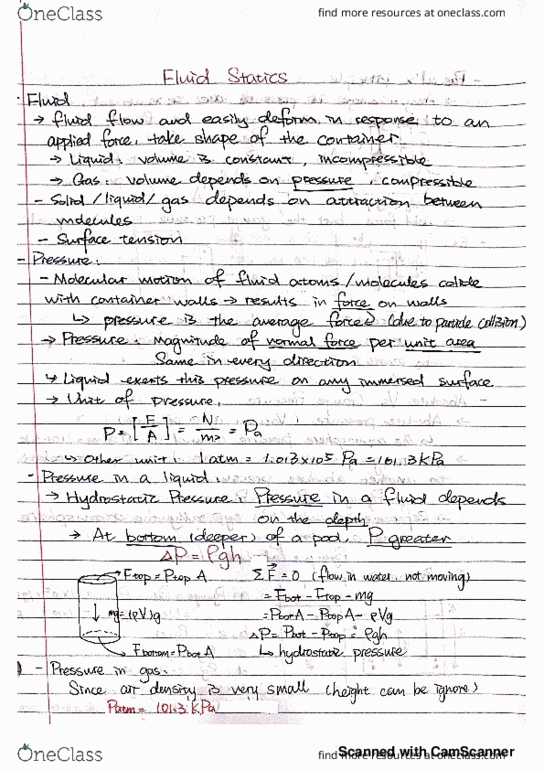 OneClass
find more resources at oneclass.com
Fluid Statics
- Fluid
→ fluid flow and easily deform in response to an
applied force, take shape of the container.
→ Liquid: volume is constant, incompressible
→ Gas: volume depends on pressure, compressible
- Solid/liquid/gas depends on attraction between
molecules
- Surface tension
- Pressure:
- Molecular motion of fluid atoms/molecules colide
with container walls → results in force on walls
↳ pressure is the average force (due to particle collision)
→ Pressure: Magnitude of normal force per unit area
Same in every direction
↳ Liquid exerts this pressure on any immersed surface
→ Unit of pressure,
P = [F/A] = N/m² = Pa
↳ Other unit: 1 atm = 1.013×10⁵ Pa = 101.3 kPa
- Pressure in a liquid:
→ Hydrostatic Pressure: Pressure in a fluid depends
on the depth
→ At bottom (deeper) of a pool, P greater
ΔP = ρgh
Ftop = Ptop A
ΣF⃗ = 0 (flow in water, not moving)
mg = (ρV)g
= Fbot - Ftop - mg
= Pbot A - Ptop A - ρVg
ΔP = Pbot - Ptop = ρgh
Fbottom = Pbot A
↳ hydrostatic pressure
- Pressure in gas:
Since air density is very small (height can be ignore)
Patm = 101.3 kPa
OneClass
find more resources at oneclass.com
Scanned with CamScanner